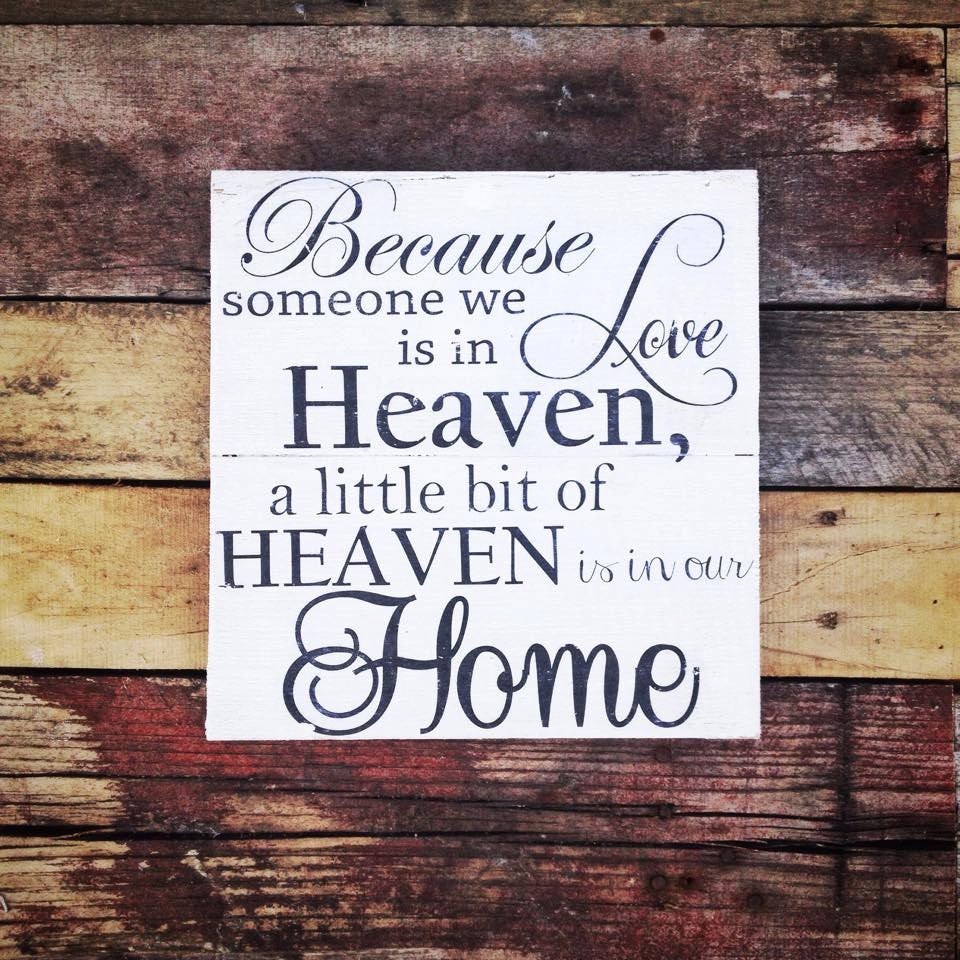 Because
someone we Love
is in
Heaven,
a little bit of
HEAVEN is in our
Home